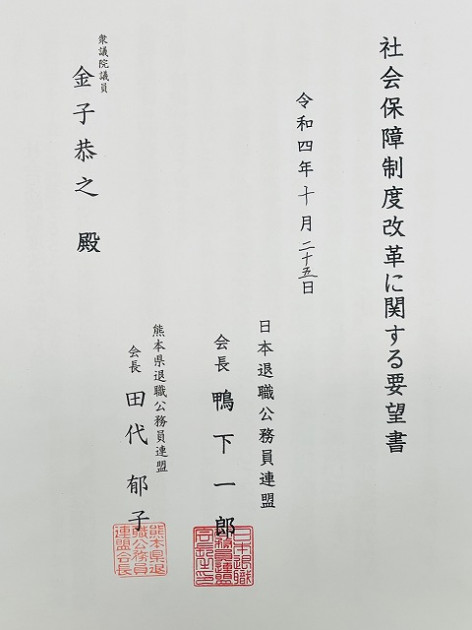 社会保障制度改革に関する要望書
令和四年十月二十五日
日本退職公務員連盟
会長 鴨下一郎
熊本県退職公務員連盟
会長 田代郁子
衆議院議員
金子恭之 殿
熊本県退
職公務員
連盟会長